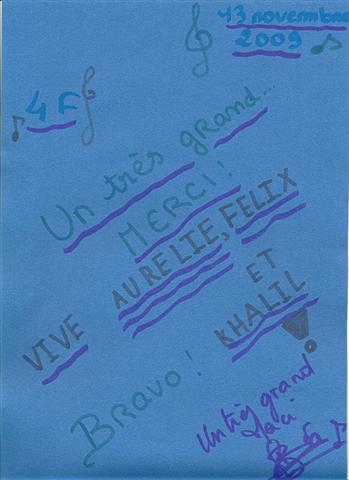 13 novembre
2009
4 F
Un très grand...
MERCI!
VIVE AURELIE, FELIX
ET
KHALIL!
Bravo!
Un très grand